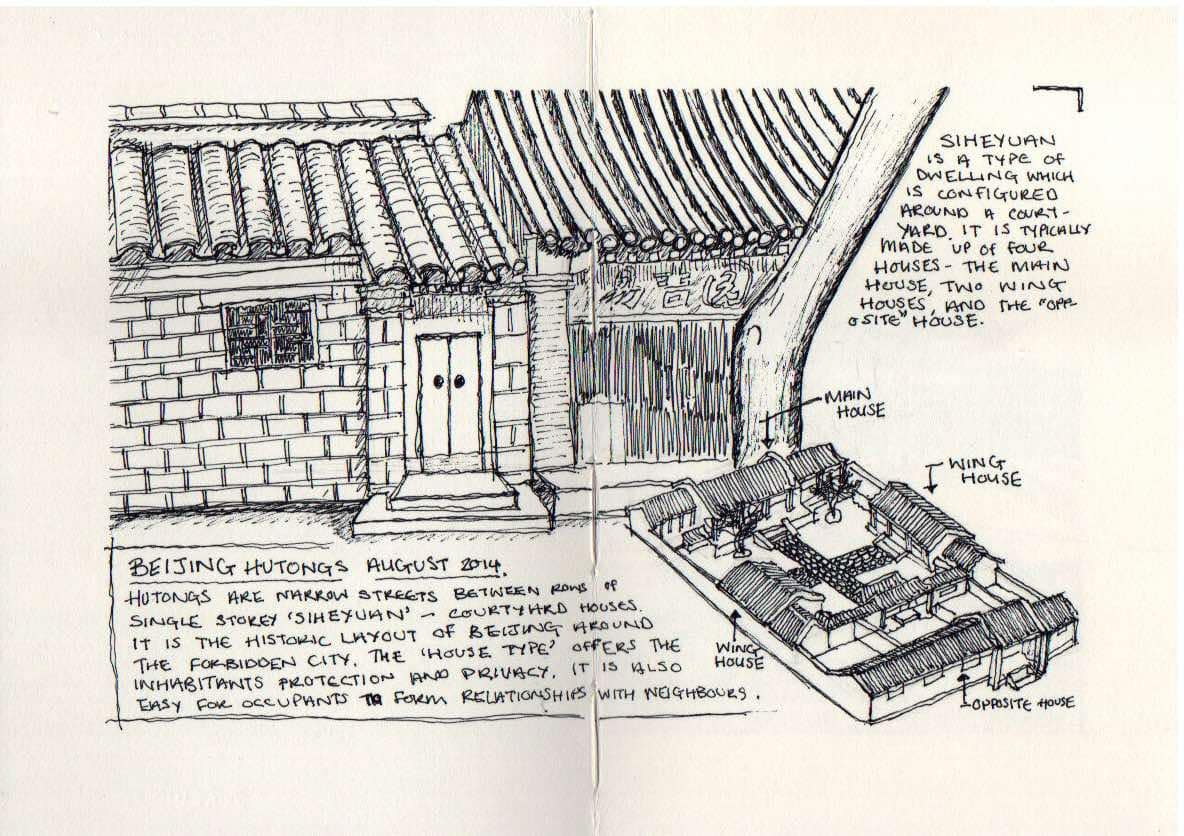 SIHEYUAN
IS A TYPE OF
DWELLING WHICH
IS CONFIGURED
AROUND A COURT-
YARD. IT IS TYPICALLY
MADE UP OF FOUR
HOUSES - THE MAIN
HOUSE, TWO WING
HOUSES, AND THE "OPP
OSITE" HOUSE.
MAIN
HOUSE
WING
HOUSE
BEIJING HUTONGS AUGUST 2014.
HUTONGS ARE NARROW STREETS BETWEEN ROWS OF
SINGLE STOREY 'SIHEYUAN' - COURTYARD HOUSES.
IT IS THE HISTORIC LAYOUT OF BEIJING AROUND
THE FORBIDDEN CITY. THE 'HOUSE TYPE' OFFERS THE
INHABITANTS PROTECTION AND PRIVACY. IT IS ALSO
EASY FOR OCCUPANTS TO FORM RELATIONSHIPS WITH NEIGHBOURS.
WING
HOUSE
OPPOSITE HOUSE